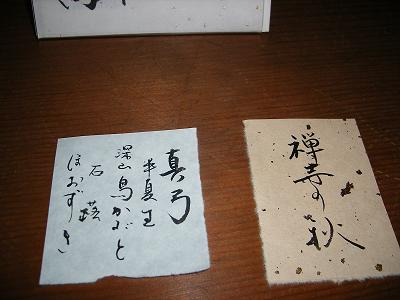 真弓
半夏生
深山鳥かぶと
石蕗
ほおずき
禅寺の秋